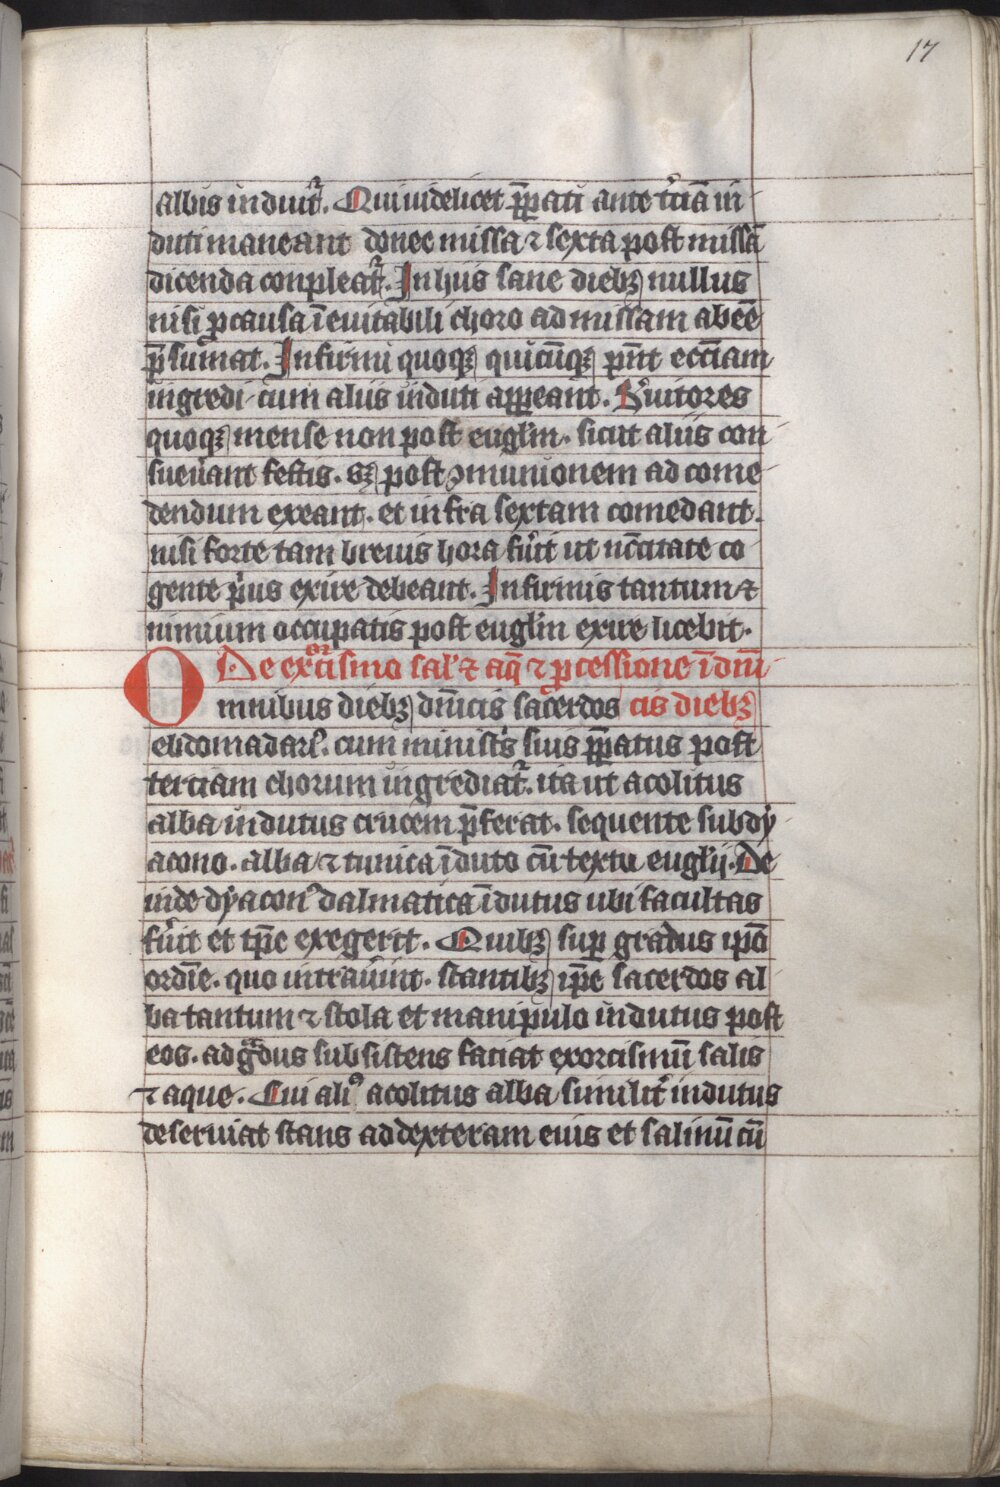 17
albis induūt᷑. Qui uidelicet p̄parati ante t̾ciā in
duti maneant donec missa ⁊ sexta post missā
dicenda conpleat᷑. In hijs sane diebꝫ nullus
nisi ꝓ causa īeuitabili choro ad missam abeē
p̄sumat. Infirmi quoqꝫ quicūqꝫ p̄nt ecc̄iam
ingredi cum aliis induti appareant. S̾uitores
quoqꝫ mense non post euḡlm. sicut aliis con
sueu̾ant festis. sꝫ post ꝯmunionem ad come
dendum exeant. et infra sextam comedant.
nisi forte tam breuis hora fu̾it ut nc̄citate co
gente p̾us exire debeant. Infirmis tantum ⁊
nimium occupatis post euḡlm exire licebit.
De exorcismo sal̾ ⁊ aq̄ ⁊ ꝓcessione ī dn̄i
Omnibus diebꝫ dn̄icis sacerdos cis diebꝫ
ebdomadari᷒. cum minist̾s suis p̄paratus post
terciam chorum ingrediat᷑. ita ut acolitus
alba indutus crucem p̄ferat. sequente subdy
acono. alba ⁊ tunica īduto cū textu euḡlij. De
inde dyacon᷒ dalmatica īdutus ubi facultas
fu̾it et tp̄e exegerit. Quibꝫ sup gradus ip̄o
ordīe. quo intrau̾int. stantibꝫ ip̄e sacerdos al
ba tantum ⁊ stola et manipulo indutus post
eos. ad gͣdus subsistens faciat exorcismū salis
⁊ aque. Cui ali᷒ acolitus alba similit̾ indutus
deseruiat stans ad dexteram eius et salinū cū